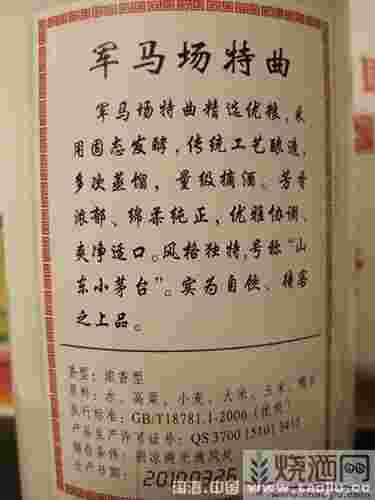 军马场特曲
军马场特曲精选优粮，采
用固态发酵，传统工艺酿造，
多次蒸馏，量级摘酒。芳香
浓郁、绵柔纯正，优雅协调、
爽净适口。风格独特，号称“山
东小茅台”。实为自饮、待客
之上品。
香型：浓香型
原料：水、高粱、小麦、大米、玉米、
执行标准：GB/T10781.1-2006（优级）
产品生产许可证号：QS 3700 1510
储存条件：阴凉干燥通风处
生产日期：20100326
烧酒